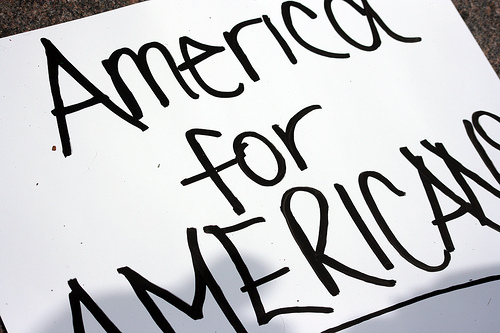 America
for
AMERICANS